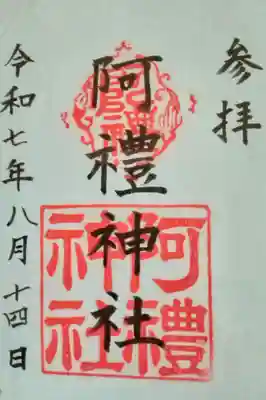 参拝
阿禮神社
阿禮神社
令和七年八月十四日